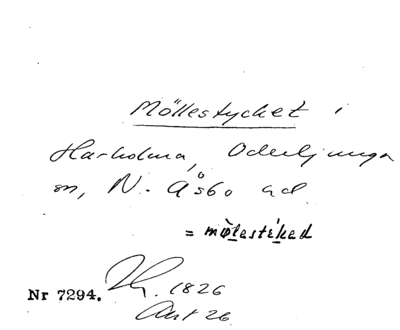 Möllestycket i
Harholma, Oderljunga
sn, N. Åsbo hd.
= mölestiked
Nr 7294.
1826
Akt 26